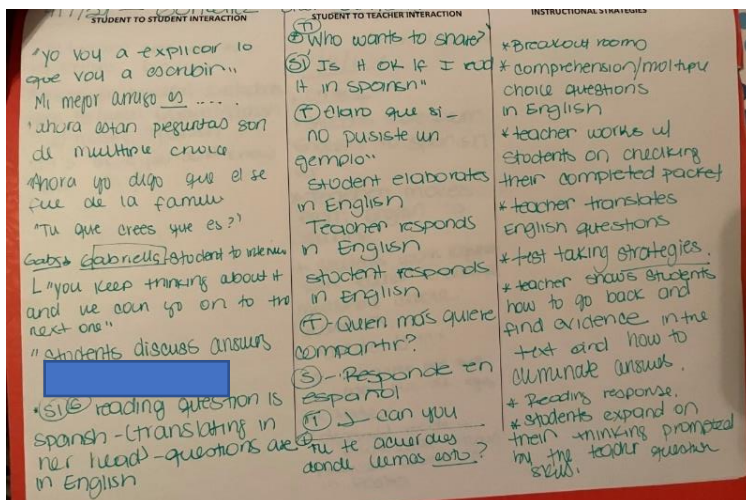 STUDENT TO STUDENT INTERACTION
"yo voy a explicar lo
que voy a escribir"
Mi mejor amigo es ....
"ahora estan preguntas son
de multiple choice
"Ahora yo digo que el se
fue de la familia
"Tu que crees que es?"
Gabs Gabriella student to
L "you keep thinking about it
and we can go on to the
next one"
" students discuss answers
S1 G reading question is
spanish - (translating in
her head) - questions are
in English
STUDENT TO TEACHER INTERACTION
T
Who wants to share?
S1 Is it ok if I read
it in spanish"
T claro que si -
no pusiste un
ejemplo"
student elaborates
in English
Teacher responds
in English
student responds
in English
T - Quien mas quiere
compartir?
S - Responde en
español
T J - can you
T tu te acuerdas
donde vemos esto?
INSTRUCTIONAL STRATEGIES
* Breakout rooms
* comprehension/multiple
choice questions
in English
* teacher works w/
students on checking
their completed packet
* teacher translates
English questions
* test taking strategies.
* teacher shows students
how to go back and
find evidence in the
text and how to
eliminate answers.
* Reading response.
* Students expand on
their thinking prompted
by the teacher question